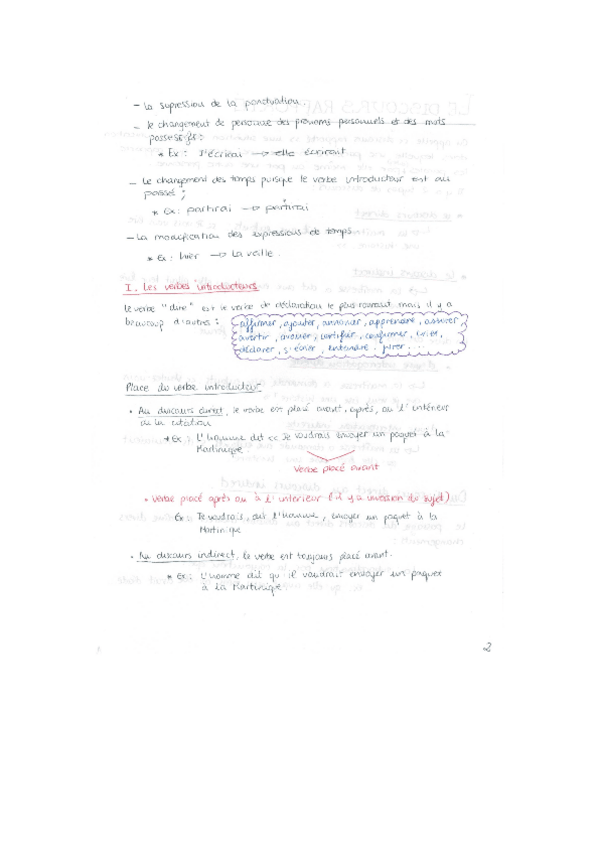 - la supression de la ponctuation.
- le changement de personne des pronoms personnels et des mots
possessifs:
* Ex: J'écrirai -> elle écrirait
- le changement des temps puisque le verbe introducteur est au
passé;
* Ex: partirai -> partirai
- la modification des expressions de temps
* Ex: hier -> la veille.
I. Les verbes introducteurs
le verbe "dire" est le verbe de déclaration le plus courant mais il y a
beaucoup d'autres: affirmer, ajouter, annoncer, apprendre, assurer,
avertir, avouer, certifier, confirmer, crier,
déclarer, s'écrier, entendre, jurer...
Place du verbe introducteur
• Au discours direct, le verbe est placé avant, après, ou l'intérieur
de la citation
* Ex: L'homme dit << Je voudrais envoyer un paquet à la
Martinique.
Verbe placé avant
• Verbe placé après ou à l'intérieur (il y a inversion du sujet)
Ex: Je voudrais, dit l'homme, envoyer un paquet à la
Martinique
• Au discours indirect, le verbe est toujours placé avant.
* Ex: L'homme dit qu'il voudrait envoyer un paquet
à la Martinique.
2